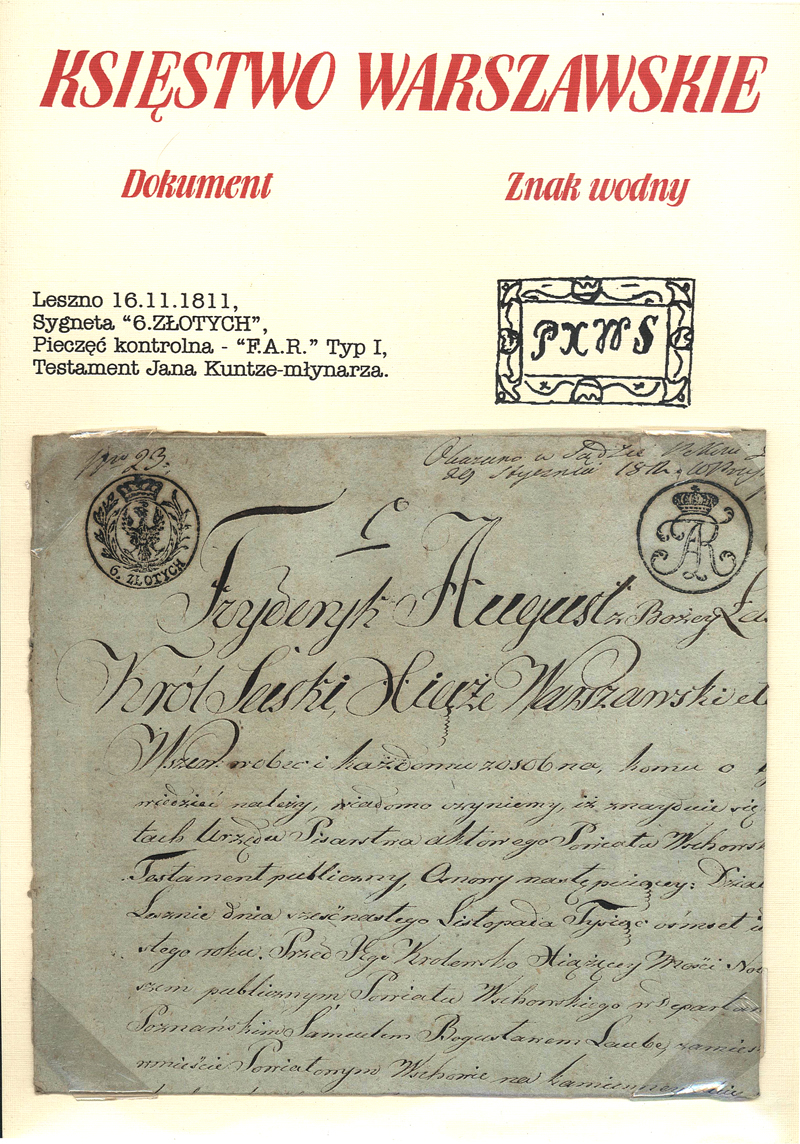 KSIĘSTWO WARSZAWSKIE
Dokument
Znak wodny
Leszno 16.11.1811,
Sygneta “6.ZŁOTYCH”,
Pieczęć kontrolna - “F.A.R.” Typ I,
Testament Jana Kuntze-młynarza.
PXWS
Nro 23.
Okazano w Sądzie
29 Stycznia
6. ZŁOTYCH
FAR
Fryderyk August z Bożey
Król Saski, Xiąże Warszawski
Wszem wobec i każdemu zosobna, komu o
wiedzieć należy, wiadomo czyniemy, iż znayduie się
tach Urzędu Pisarstwa aktowego Powiatu
Testament publiczny, Osnowy następuiącey:
Lesznie dnia szesnastego Listopada Tysiąc ośmset
stego roku. Przed Jego Krolewsko Xiążęcey Mości
szem publicznym Powiatu Wschowskiego w
Poznańskim Samuelem Bogusławem Laube,
w mieście Powiatowym Wschowie na